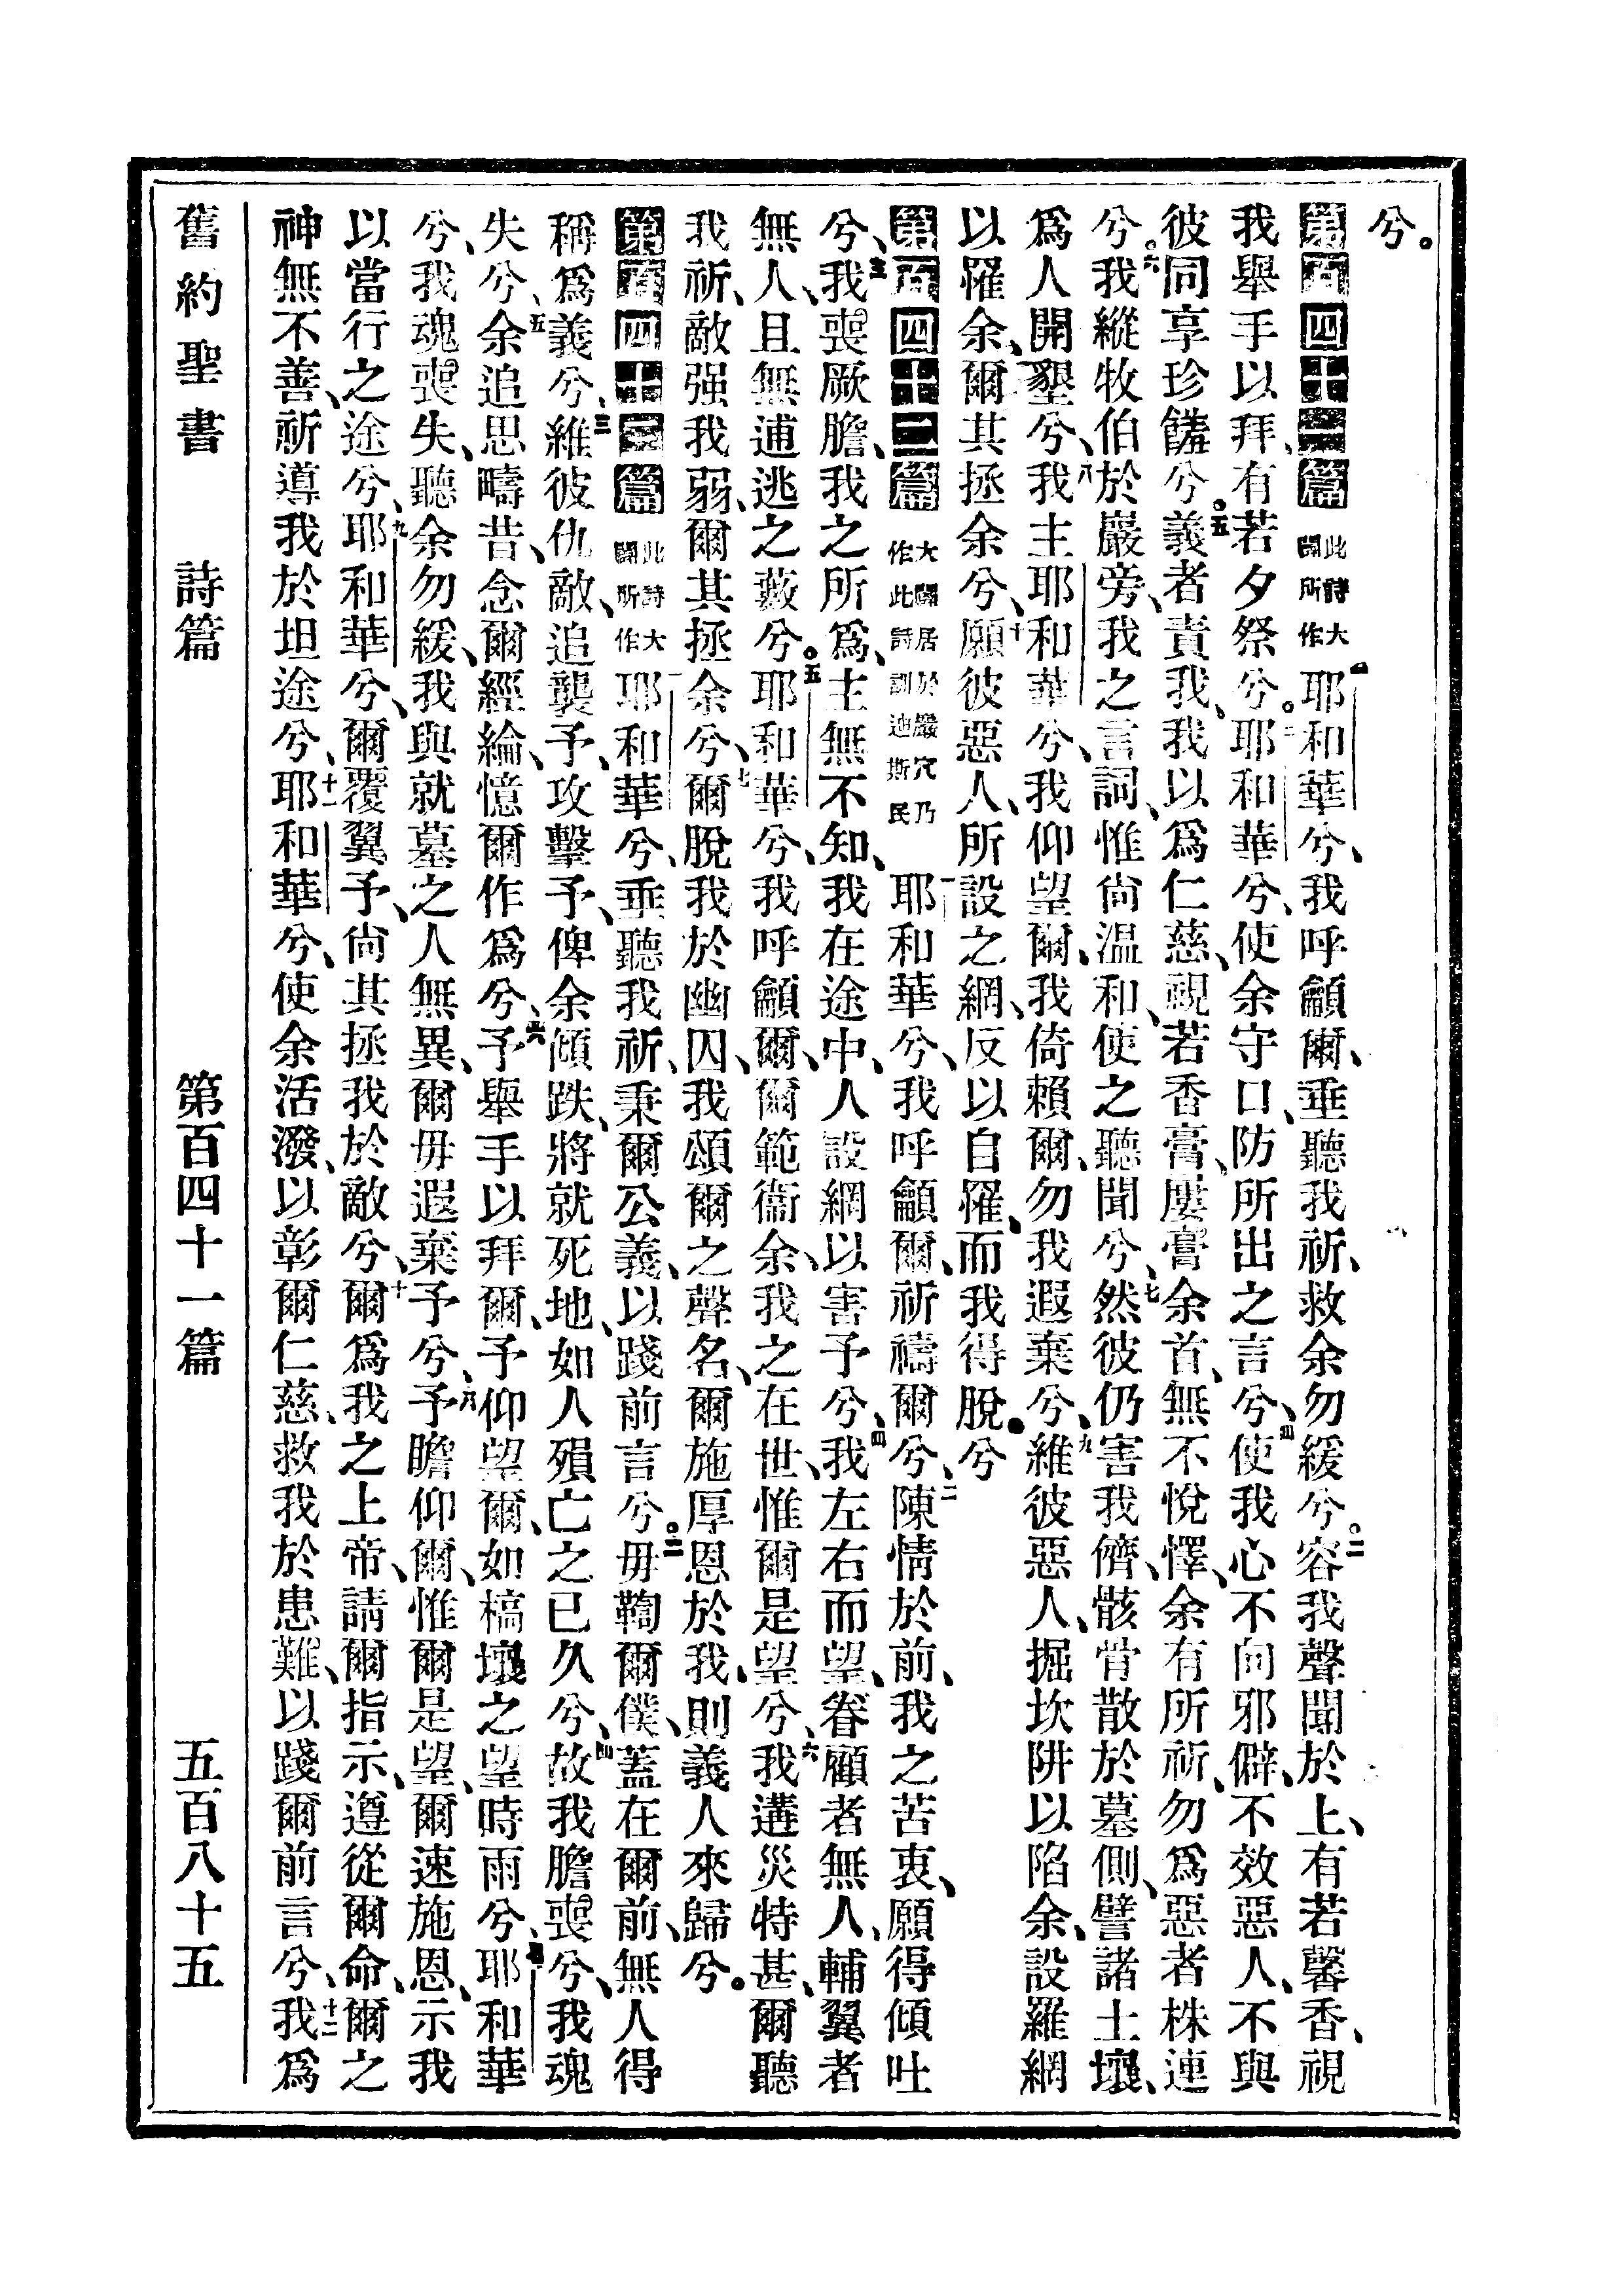 兮。
第百四十一篇 此詩大闢所作 一耶和華兮、我呼籲爾、垂聽我祈、救余勿緩兮。二容我聲聞於上、有若馨香、視
我舉手以拜、有若夕祭兮。三耶和華兮、使余守口、防所出之言兮、四使我心不向邪僻、不效惡人、不與
彼同享珍饈兮。五義者責我、我以爲仁慈、視若香膏、屢膏余首、無不悅懌、余有所祈、勿爲惡者株連
兮。六我縱牧伯於巖旁、我之言詞、惟尙温和、使之聽聞兮、七然彼仍害我儕、骸骨散於墓側、譬諸土壤、
爲人開墾兮、八我主耶和華兮、我仰望爾、我倚賴爾、勿我遐棄兮、九維彼惡人、掘坎阱以陷余、設羅網
以罹余、爾其拯余兮、十願彼惡人、所設之網、反以自罹、而我得脫兮。
第百四十二篇 大闢居於巖穴乃作此詩訓迪斯民 一耶和華兮、我呼籲爾、祈禱爾兮、二陳情於前、我之苦衷、願得傾吐
兮、三我喪厥膽、我之所爲、主無不知、我在途中、人設網以害予兮、四我左右而望、眷顧者無人、輔翼者
無人、且無逋逃之藪兮。五耶和華兮、我呼籲爾、爾範衞余、我之在世、惟爾是望兮、六我遘災特甚、爾聽
我祈、敵强我弱、爾其拯余兮、七爾脫我於幽囚、我頌爾之聲名、爾施厚恩於我、則義人來歸兮。
第百四十三篇 此詩大闢所作 一耶和華兮、垂聽我祈、秉爾公義、以踐前言兮。二毋鞫爾僕、蓋在爾前、無人得
稱爲義兮、三維彼仇敵、追襲予、攻擊予、俾余傾跌、將就死地、如人殞亡之已久兮、四故我膽喪兮、我魂
失兮、五余追思疇昔、念爾經綸、憶爾作爲兮、六予舉手以拜爾、予仰望爾、如槁壤之望時雨兮、七耶和華
兮、我魂喪失、聽余勿緩、我與就墓之人無異、爾毋遐棄予兮、八予瞻仰爾、惟爾是望、爾速施恩、示我
以當行之途兮、九耶和華兮、爾覆翼予、尙其拯我於敵兮、十爾爲我之上帝、請爾指示、遵從爾命、爾之
神無不善、祈導我於坦途兮、十一耶和華兮、使余活潑、以彰爾仁慈、救我於患難、以踐爾前言兮、十二我爲
舊約聖書 詩篇 第百四十一篇 五百八十五